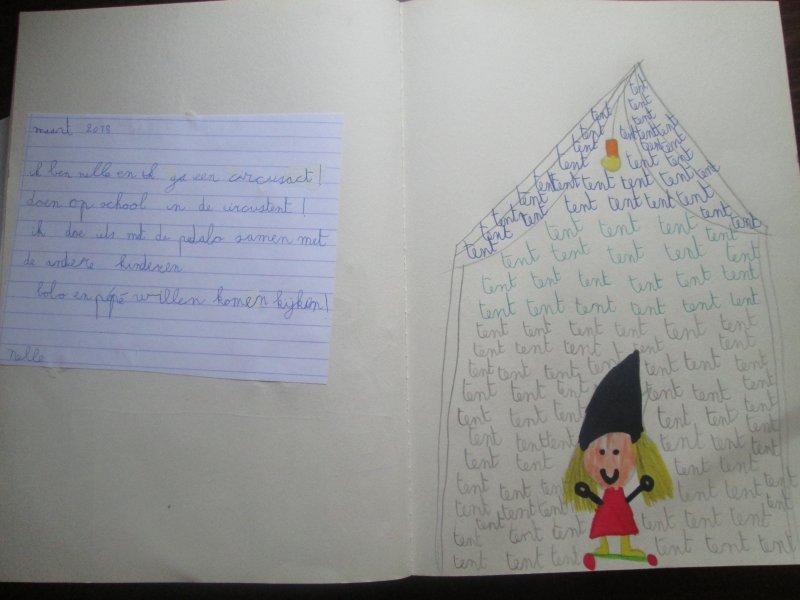 maart 2018
ik ben nelle en ik ga een circusact!
doen op school in de circustent!
ik doe iets met de pedalo samen met
de andere kinderen
willen komen kijken!
nelle
tent
tent
tent tent
tent tent tent tent
tent tent tent
tent tent tent tent
tent tent tent tent tent tent tent
tent tent tent tent tent tent
tent tent tent tent
tent tent tent tent tent
tent tent tent tent tent tent
tent tent tent tent tent tent
tent tent tent tent tent tent
tent tent tent tent tent tent tent
tent tent tent tent tent
tent tent tent tent tent tent
tent tent tent tent tent tent
tent tent tent tent tent tent
tent tent tent tent tent tent
tent tent tent tent tent
tent tent tent tent tent tent
tent tent tent tent tent tent
tent tent tent tent tent tent
tent tent tent tent tent tent